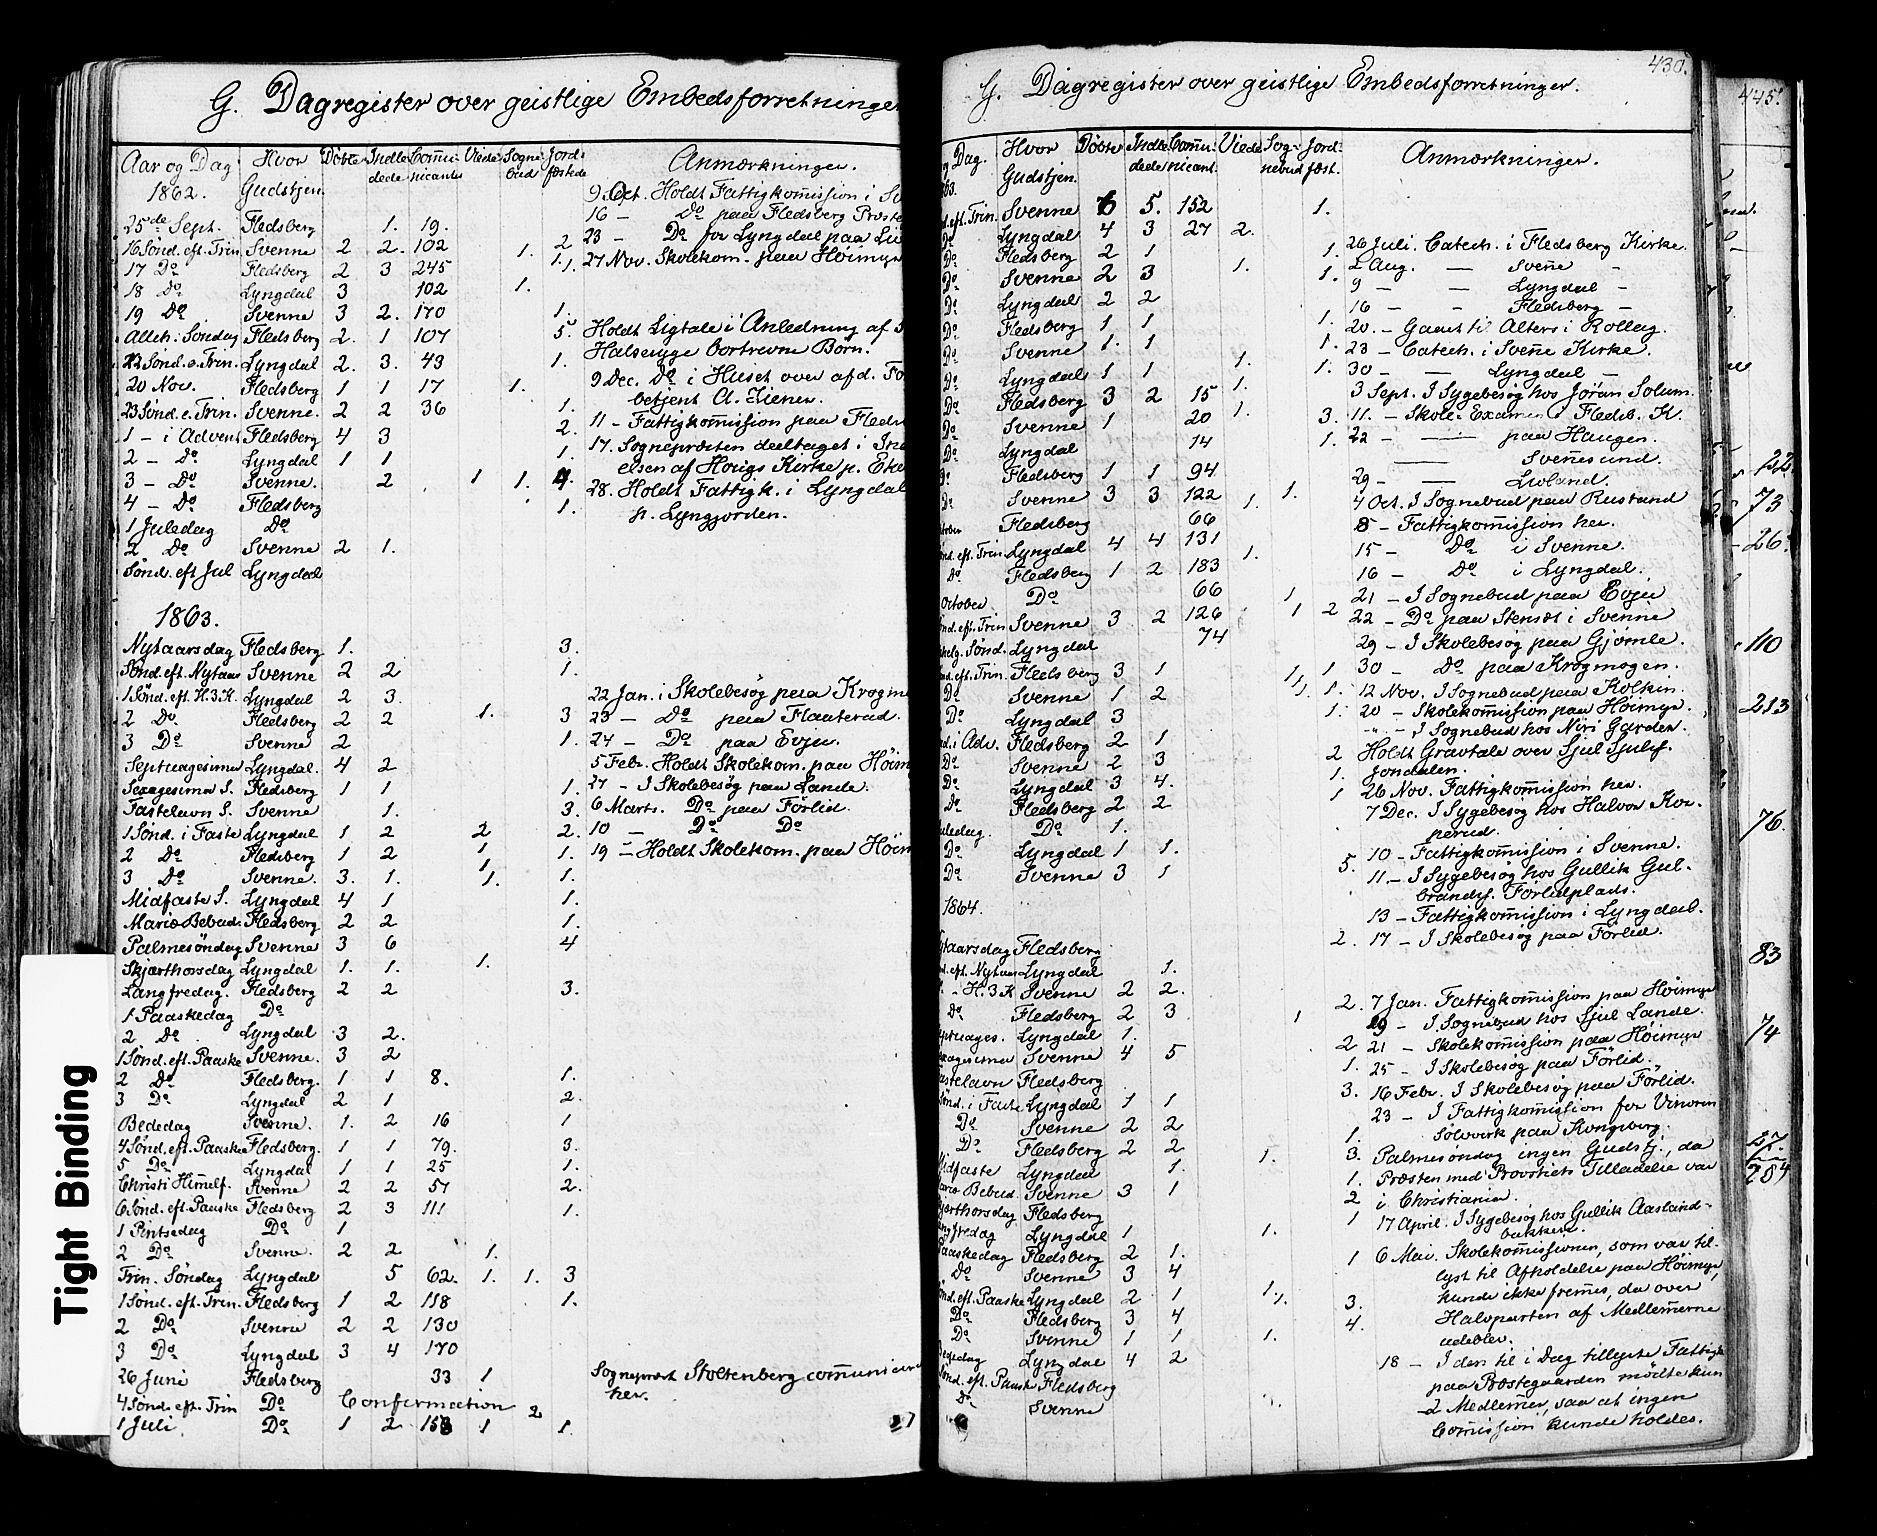 G. Dagregister over geistlige Embedsforretninger
Aar og Dag Hvor Gudstjen. Døbte Indledede Comunicanter Viede Sognebud Jordfæstede Anmærkninger.
1862.
9 Oct. Holdt Fattigkomission i Sv
16 — Do paa Flesberg Præste
25de Sept. Flesberg 1. 19.
23 — Do for Lyngdal paa
16 Sønd. eft. Trin. Svenne 2 2. 102 1. 2
27 Nov. Skolekom. paa Høimyr
17 Do Flesberg 2 3 245 1.1.
18 Do Lyngdal 3 102 1.
19 Do Svenne 3 2. 170 1.
Alleh. Søndag Flesberg 2. 1 107 5. Holdt Ligtale i Anledning af
Halssyge bortrevne Børn.
22 Sønd. e. Trin. Lyngdal 2. 3. 43 1.
20 Nov. Flesberg 1 1 17 1. 9 Dec. Do i Huset over afd.
betjent A.
23 Sønd. e. Trin. Svenne. 2 2 36 1.
1 — i Advent Flesberg 4 3 2. 11 — Fattigkomission paa Flesb
2 — Do Lyngdal 1 1 1. 17. Sognepræsten deeltaget i
elsen af Hovigs Kirke p. Eke
3 — Do Svenne. 2 1 1. 4.
28. Holdt Fattigk. i Lyngdal
4 — Do Flesberg 1. p. Lyngjorden.
1 Juledag Do
2 Do Svenne 2 1.
Sønd. eft Jul Lyngdal
1863.
Nytaarsdag Flesberg 1. 3.
Sønd. eft. Nytaar Svenne 2 2 1.
1 Sønd. eft. H.3.K. Lyngdal 2 3. 22 Jan. i Skolebesøg paa Krogm
2 Do Flesberg 2 2 1. 3 23 — Do paa Flaaterud.
3 Do Svenne 2 1. 24 — Do paa Evju.
Septuagesima Lyngdal. 4 2 5 Febr. Holdt Skolekom. paa Høim
Sexagesima S. Flesberg 1 1 1. 27 — I Skolebesøg paa Lande.
Fastelavn S. Svenne 1. 3. 6 Marts. Do paa Førlid.
1 Sønd. i Faste Lyngdal 1 2 2 2. 10 — Do Do
2 Do Flesberg 1 2 1 1. 19 — Holdt Skolekom. paa Høim
3 Do Svenne. 3. 1. 1. 1.
Midfaste S. Lyngdal 4 1 1.
Mariæ Bebud. Flesberg 2 2 1.
Palmesøndag Svenne 3 6 4
Skjærthorsdag Lyngdal 1. 1. 1.
Langfredag. Flesberg 2 2 3.
1 Paaskedag Do
2 Do Lyngdal 3 2.
1 Sønd. eft. Paaske Svenne. 3 2
2 Do Flesberg. 1 1 8. 1.
3 Do Lyngdal 2 1 2.
Bededag Svenne. 1. 2 16 1
4 Sønd. eft. Paaske Flesberg. 1 1 79. 3.
5 Do Lyngdal 1 1 25 1.
Christi Himelf. Svenne 2 2 57 2.
6 Sønd. eft. Paaske Flesberg 2 3 111 1.
1 Pintsedag Do 1
2 Do Svenne. 2 2 1.
Trin. Søndag Lyngdal 5 62. 1. 1. 3
1 Sønd. eft. Trin. Flesberg 1 2 118 1.
2 Do Svenne 2 2 130
3 Do Lyngdal 3 4 170
26 Juni Flesberg 33 1 Sognepræst Stoltenberg comunicere
her.
4 Sønd. eft. Trin Do Confirmation 2
1 Juli. Do 1 2 158 1 1.
G. Dagregister over geistlige Embedsforretninger. 430.
og Dag. Hvor Gudstjen. Døbte Indledede Comunicant. Viede Sognebud Jordfæst. Anmærkninger.
63.
d. eft. Trin. Svenne 6 5. 152 1.
Do Lyngdal 4 3 27 2. 26 Juli. Catech. i Flesberg Kirke.
Do Flesberg 2 1 1. 2 Aug. — Svene —
Do Svenne 2 3 1. 1. 9 — — Lyngdal —
Do Lyngdal 2 2 16 — — Flesberg —
Do Flesberg 1 1 1. 20. — Gaaet til Alters i Rollag.
Do Svenne 1. 1 1. 23 — Catech. i Svene Kirke.
Do Lyngdal 1 1 1. 1. 30 — — Lyngdal —
Do Flesberg 3 2 15 1. 3 Sept. I Sygebesøg hos Jøran Solum.
Do Svenne 1 20 1. 3. 11. — Skole-Examen i Flesb. K.
Do Lyngdal 14 1. 22 — — paa Haugen.
— Svenesund.
Do Flesberg 1 1 94 29 — — Livland.
Do Svenne 3 3 122 1. 1. 4 Oct. I Sognebud paa Rustand
tober Flesberg 66 8 — Fattigkomission her.
nd. eft. Trin Lyngdal 4 4 131 1. 15 — Do i Svenne.
Do Flesberg 1 2 183 16 — Do i Lyngdal.
October Do 66 1 21 — I Sognebud paa Evju
nd. eft. Trin Svenne 3 2 126 1 2 22 — Do paa Stensæt i Svenne
helg. Sønd. Lyngdal 74 29 — I Skolebesøg paa Gjømle.
d. eft. Trin. Flesberg 3 1 1 1 30 — Do paa Krogmogen.
Do Svenne 1 2 1. 1. 12 Nov. I Sognebud paa Kolkin.
Do Lyngdal 3 1. 20 — Skolekomission paa Høimyr.
d. i Adv. Flesberg 2 1 " — I Sognebud hos Niri Garden.
Do Svenne 2 3 2 Holdt Gravtale over Sjul Sjulss.
Do Lyngdal 3 4. 1. Jondalen.
Do Flesberg 2 2 1 26 Nov. Fattigkomission her.
uledag. Do 1. 7 Dec. I Sygebesøg hos Halvor Kor-
perud.
Do Lyngdal 1 1. 10 — Fattigkomission i Svenne.
Do Svenne 3 1 5. 11 — I Sygebesøg hos Gullik Gul-
brands. Førlidplads.
1864. 13 — Fattigkomission i Lyngdal.
ytaarsdag Flesberg 2. 17 — I Skolebesøg paa Førlid.
nd. eft. Nytaar Lyngdal 1.
— H.3.K Svenne 2 2. 2. 7 Jan. Fattigkomission paa Høimyr
Do Flesberg 2 3 1 19 — I Sognebud hos Sjul Lande.
eptuages. Lyngdal 1. 2 21 — Skolekomission paa Høimyr
xagesima Svenne 4 5 1. 25 — I Skolebesøg paa Førlid.
astelavn Flesberg 3. 16 Febr. I Skolebesøg paa Førlid.
Sønd. i Faste Lyngdal 1 1 23 — I Fattigkomission for Vinoren
Do Svenne 2 2 1. Sølvverk paa Kongsberg.
Do Flesberg 2 2 1. 3. Palmesøndag ingen Gudstj., da
Midfaste Lyngdal 1. 1. Præsten med Provstiets Tilladelse var
ariæ Bebud. Svenne 3 1 2 i Christiania.
kjærthorsdag Flesberg 1 17 April. I Sygebesøg hos Gullik Aasland-
angfredag Lyngdal 1 1. bakken.
Paaskedag Flesberg 2 1. 1 6 Mai. Skolekomissionen, som var til-
Do Svenne 3 4 lyst til Afholdelse paa Høimyr,
ønd. eft. Paaske Lyngdal 2 1 1. 1. 3. kunde ikke fremes, da over
Do Flesberg 3 4 4. Halvparten af Medlemerne
Do Svenne 1 1 1. udeblev.
Bededag Lyngdal 4 2 18 — I den til i Dag tillyste Fattigk
Sønd. eft. Paaske Flesberg paa Præstegaarden mødte kun
Do Svenne 2 Medlemer, saa at ingen
Comission kunde holdes.
445.
22.
73
26.
110
213
76.
83
74
57
284
Tight Binding